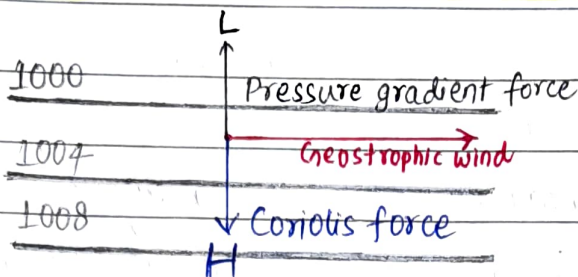 L
1000
Pressure gradient force
1004
Geostrophic wind
1008
Coriolis force
H